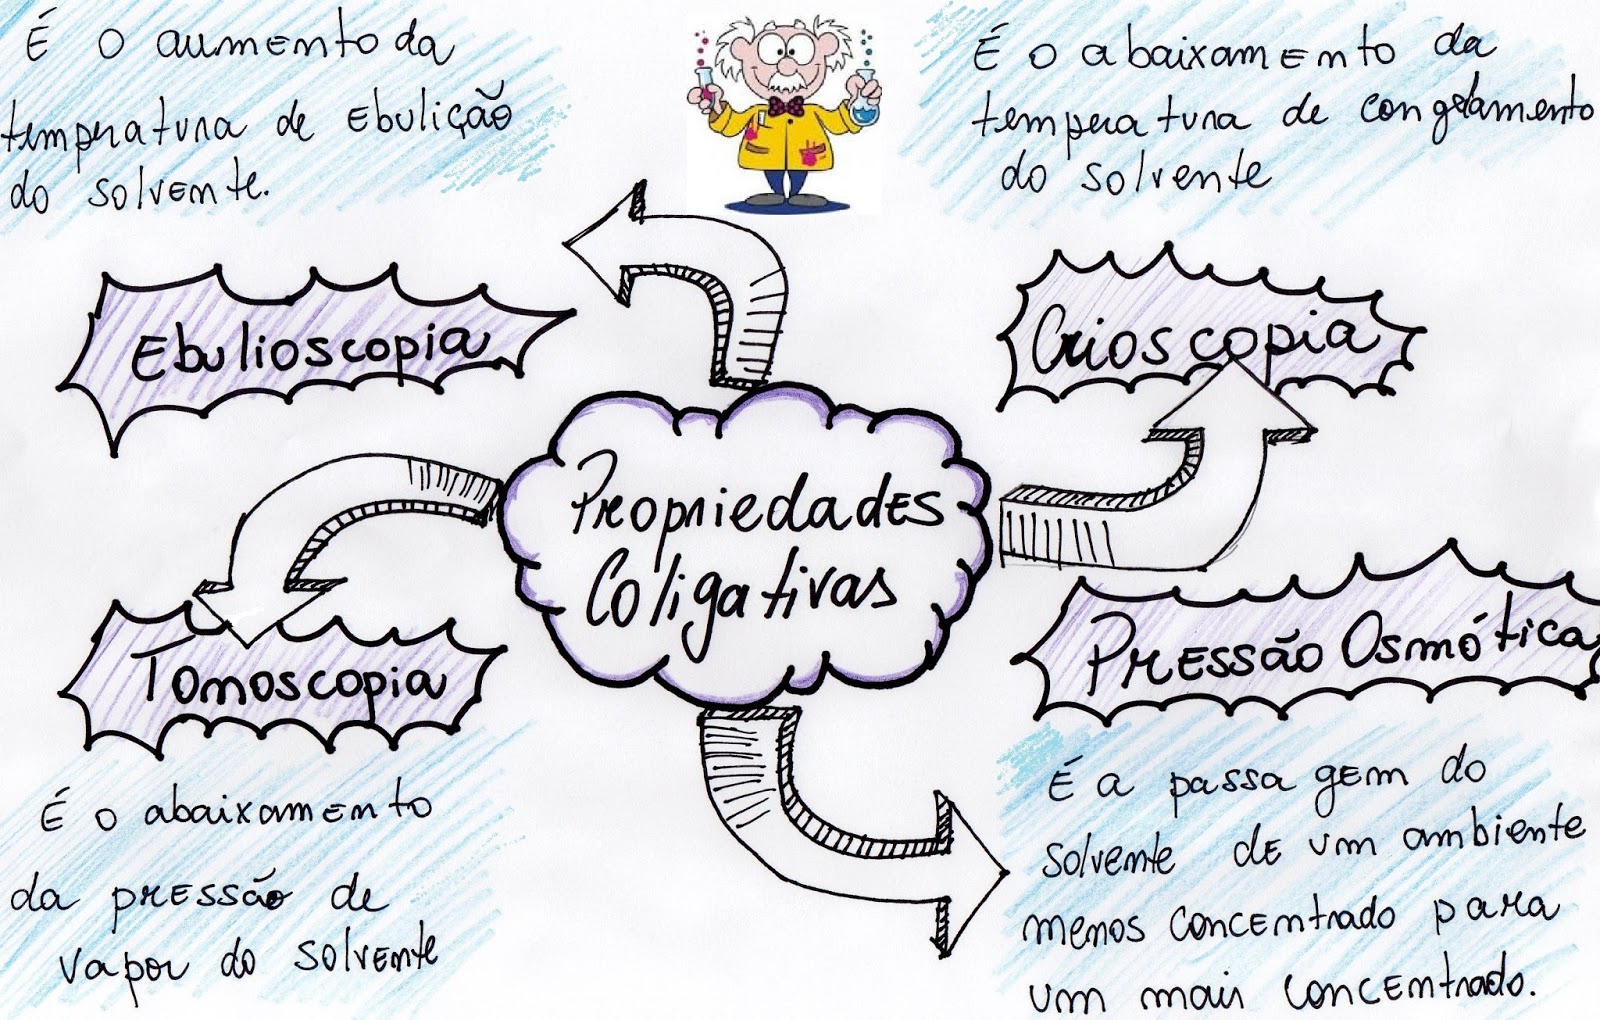 É o aumento da
temperatura de Ebulição
do solvente.
É o abaixamento da
temperatura de congelamento
do solvente
Ebulioscopia
Crioscopia
Propriedades
Coligativas
Tonoscopia
Pressão Osmótica
É o abaixamento
da pressão de
vapor do solvente
É a passagem do
solvente de um ambiente
menos concentrado para
um mais concentrado.